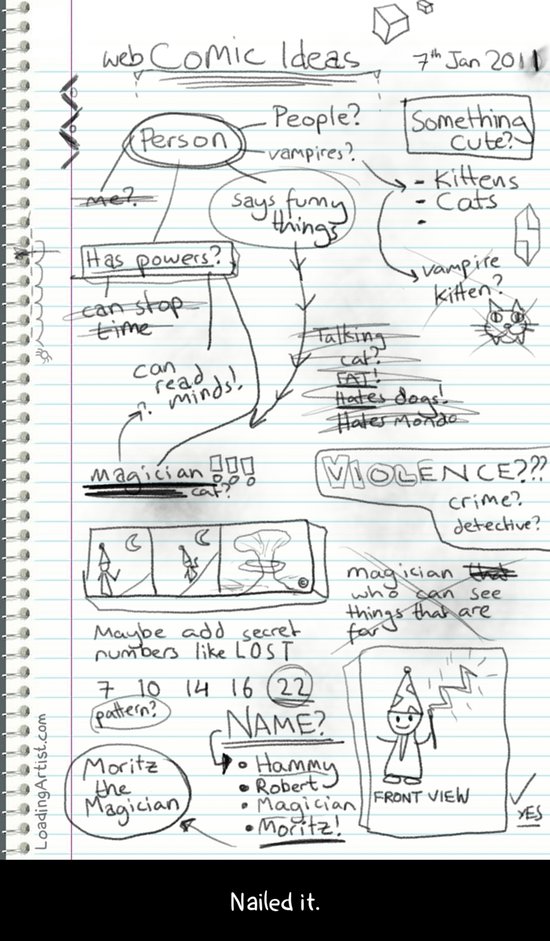 web Comic Ideas
7th Jan 2011
Person
People?
vampires?
Something
Cute?
me?
says funny
things
- Kittens
- Cats
-
Has powers?
vampire
kitten?
can stop
time
can
read
minds!
Talking
cat?
FAT!
Hates dogs!
Hates Monday
magician !!!
cat?
VIOLENCE???
crime?
detective?
©
magician that
who can see
things that are
far
Maybe add secret
numbers like LOST
7 10 14 16 22
pattern?
NAME?
• Hammy
• Robert
• Magician
• Moritz!
Moritz
the
Magician
FRONT VIEW
YES
LoadingArtist.com
Nailed it.